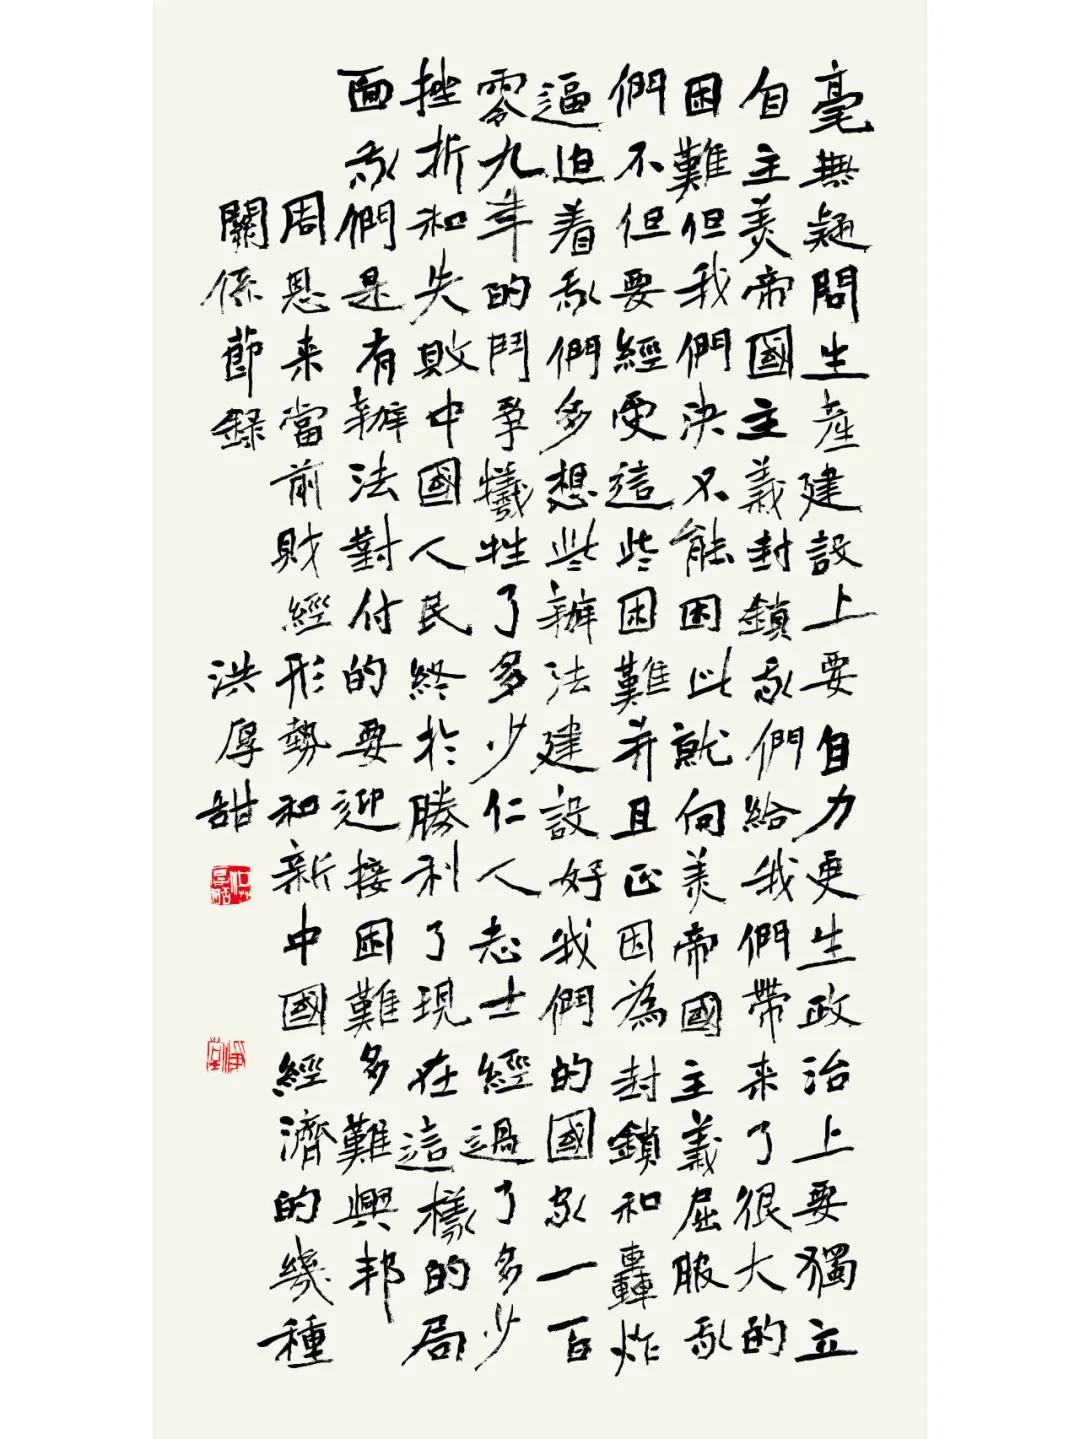 毫無疑問生產建設上要自力更生政治上要獨立
自主美帝國主義封鎖我們給我們帶来了很大的
困難但我們決不能因此就向美帝國主義屈服我
們不但要經受這些困難并且正因為封鎖和轟炸
逼迫着我們多想些辦法建設好我們的國家一百
零九年的鬥爭犧牲了多少仁人志士經過了多少
挫折和失敗中國人民終於勝利了現在這樣的局
面我們是有辦法對付的要迎接困難多難興邦
周恩来當前財經形勢和新中國經濟的幾種
關係節錄
洪厚甜